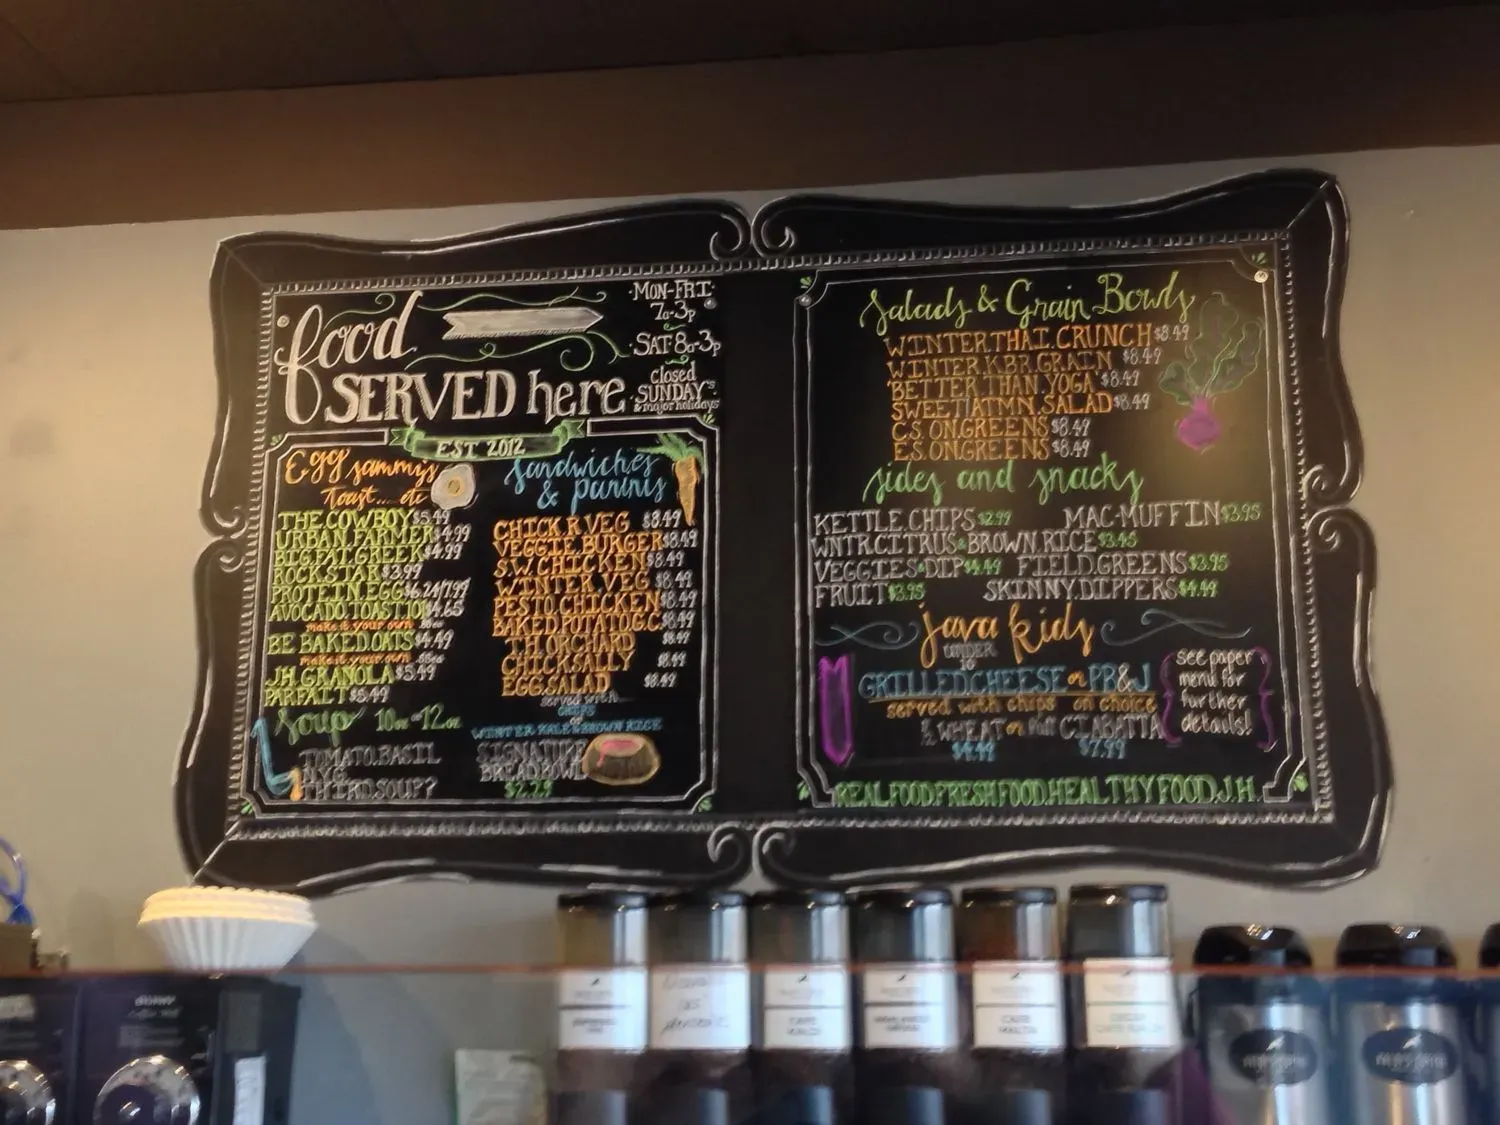 food
SERVED here
MON-FRI
7a-3p
SAT 8a-3p
closed
SUNDAY'S
& major holidays
EST 2012
Egg sammys
Toast... etc
THE.COWBOY $5.49
URBAN.FARMER $4.99
BIG.FAT.GREEK $4.99
ROCKSTAR $3.99
PROTEIN.EGG $6.24/7.99
AVOCADO.TOAST.101 $4.65
make it your own
BE BAKED.OATS $4.49
make it your own
J.H.GRANOLA $5.49
PARFAIT $5.49
Soup 10oz - 12oz
TOMATO.BASIL
NYG
THIRD.SOUP??
Sandwiches
& paninis
CHICK.R.VEG $8.49
VEGGIE.BURGER $8.49
S.W.CHICKEN $8.49
WINTER.VEG $8.49
PESTO.CHICKEN $8.49
BAKED.POTATO.G.C. $8.49
TH.ORCHARD $8.49
CHICK.SALLY $8.49
EGG.SALAD $8.49
served with...
CHIPS
or
WINTER KALE & BROWN RICE
SIGNATURE
BREAD.BOWL
$2.29
Salads & Grain Bowls
WINTER.THAI.CRUNCH $8.49
WINTER.K.BR.GRAIN $8.49
'BETTER.THAN.YOGA' $8.49
SWEET|ATMN.SALAD $8.49
C.S.ON.GREENS $8.49
E.S.ON.GREENS $8.49
sides and snacks
KETTLE.CHIPS $2.99 MAC-MUFFIN $3.95
WNTR.CITRUS & BROWN.RICE $3.45
VEGGIES & DIP $4.49 FIELD.GREENS $3.95
FRUIT $3.95 SKINNY.DIPPERS $4.49
java kids
UNDER
10
GRILLED.CHEESE or PB&J
served with chips on choice
½ WHEAT or CIABATTA
$4.49 $7.99
see paper
menu for
further
details!
REAL.FOOD.FRESH.FOOD.HEALTHY.FOOD.J.H.
CAFE
MALTA